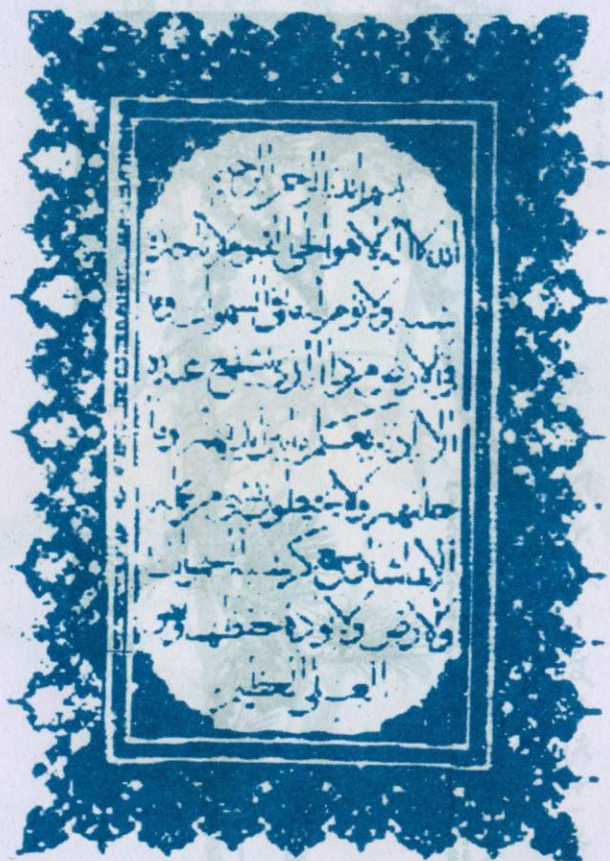 بسم الله الرحمن الرحيم
الله لا اله الا هو الحي القيوم لا تاخذه
سنة ولا نوم له ما في السموات وما
في الارض من ذا الذي يشفع عنده
الا باذنه يعلم ما بين ايديهم وما
خلفهم ولا يحيطون بشيء من علمه
الا بما شاء وسع كرسيه السموات
والارض ولا يوده حفظهما وهو
العلي العظيم